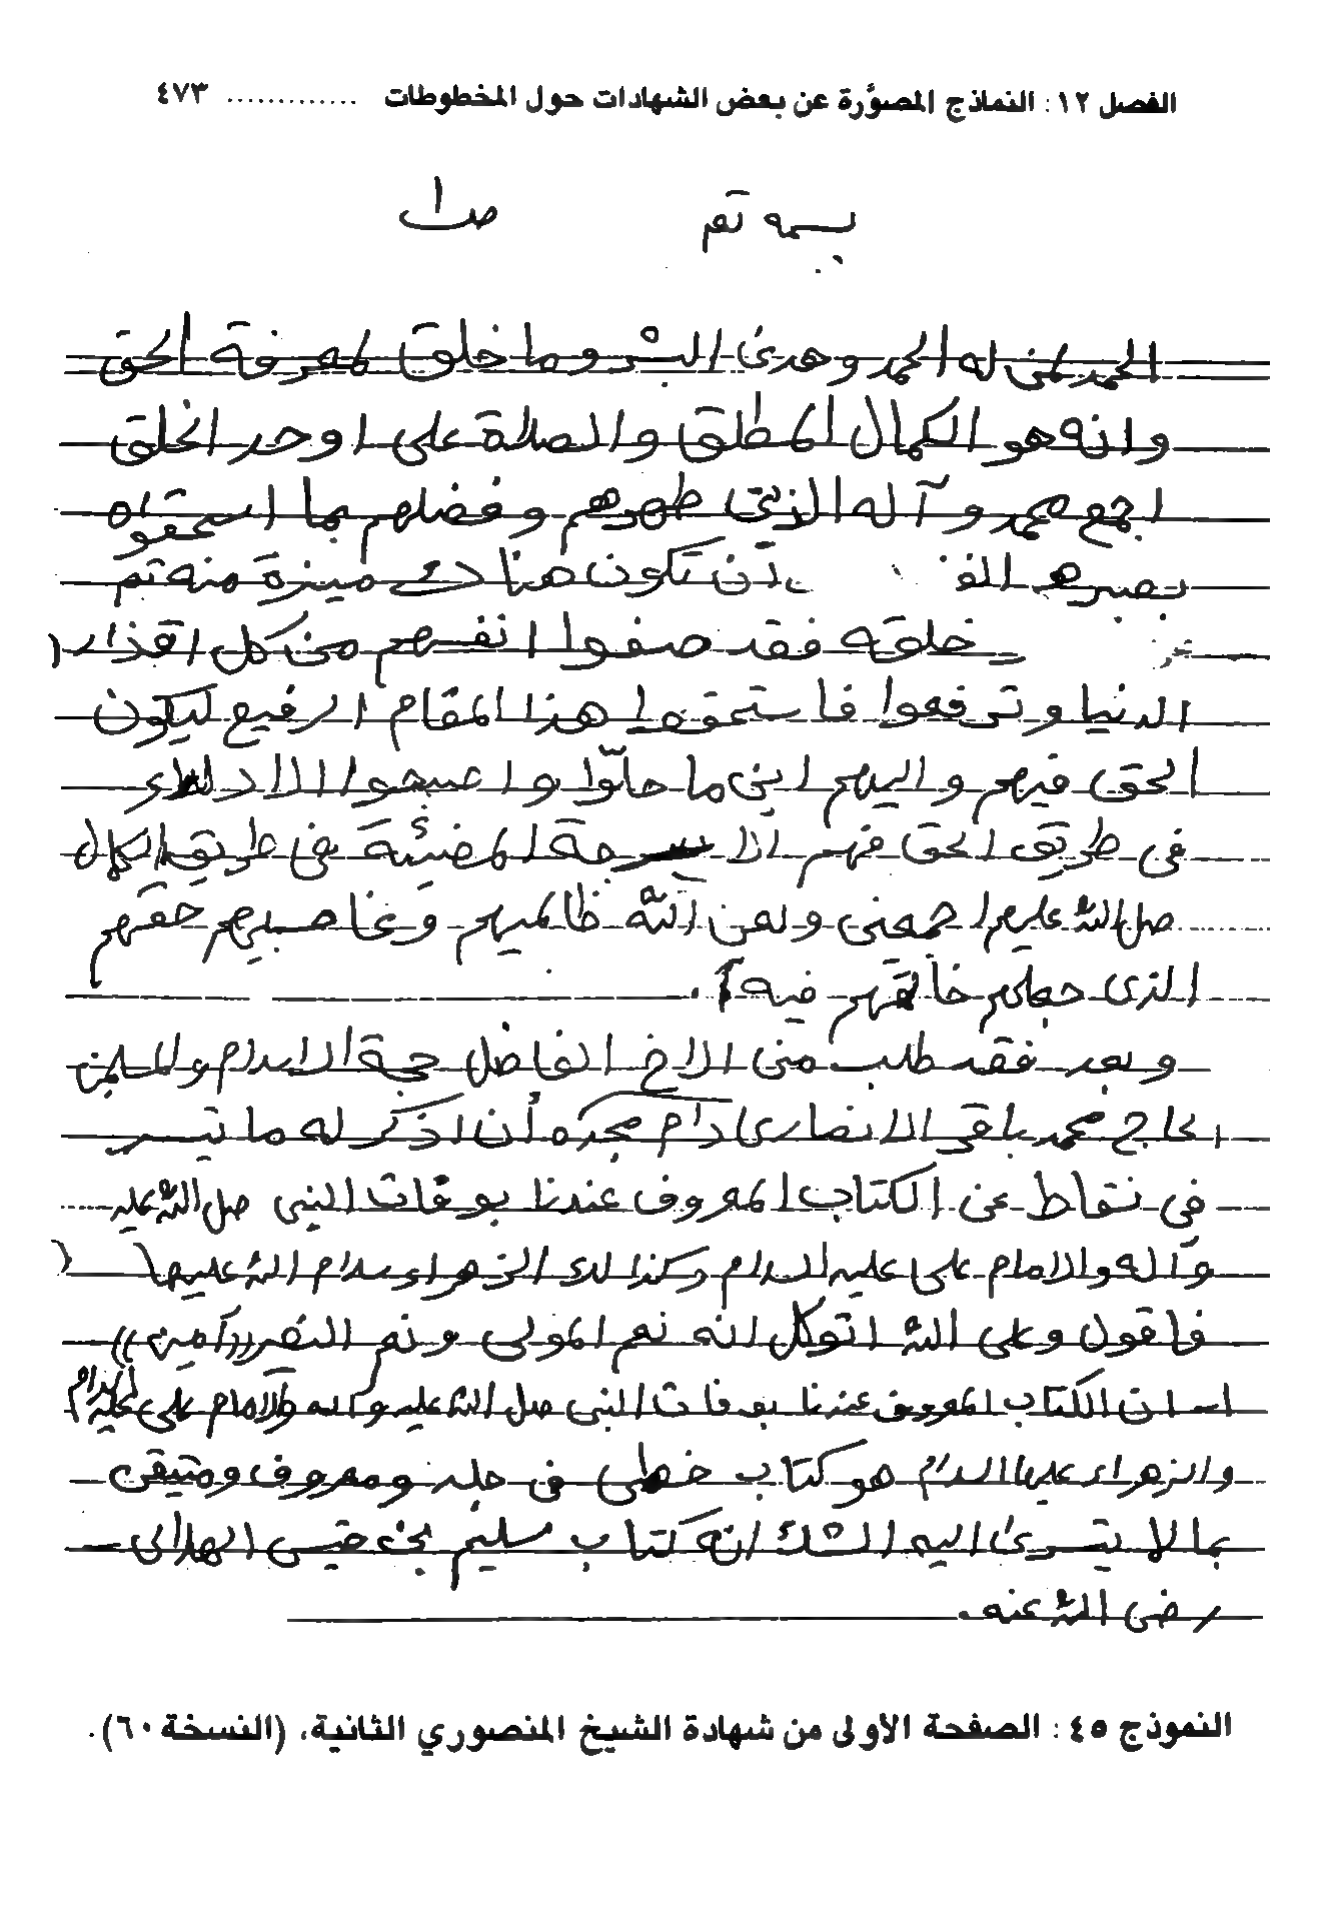 الفصل ١٢ : النماذج المصوَّرة عن بعض الشهادات حول المخطوطات ............. ٤٧٣
بسمه تع ص١
الحمد لمن له الحمد وهدى البشر وما خلق لمعرفة الحق
وانه هو الكمال المطلق والصلاة على اوحد الخلق
اجمع محمد وآله الذين طهرهم وفضلهم بما استحقوا
تكون هناك ميزة منه تع
خلقه فقد صفوا انفسهم من كل اقذار
الدنيا وترفعوا فاستحقوا هذا المقام الرفيع ليكون
الحق فيهم واليهم اين ما حلّوا واصبحوا الادلاء
في طريق الحق فهم الا المضيئة في طريق الكمال
صلى الله عليهم اجمعين ولعن الله ظالميهم وغاصبيهم حقهم
الذي جعلهم خالقهم فيه .
وبعد فقد طلب مني الاخ الفاضل حجة الاسلام والمسلمين
الحاج محمد باقر الانصاري دام مجده أن اذكر له ما تيسر
في نقاط عن الكتاب المعروف عندنا بوفات النبي صلى الله عليه
وآله والامام علي عليه السلام وكذلك الزهراء سلام الله عليها
فاقول وعلى الله اتوكل انه نعم المولى ونعم النصير ((آمين))
١ـ ان الكتاب المعروف عندنا بوفات النبي صلى الله عليه وآله والامام علي عليه السلام
والزهراء عليها السلام هو كتاب خطي في حلد ومعروف ومتيقن
بما لا يتسرى اليه الشك انه كتاب سليم بن قيس الهلالي
رضي الله عنه.
النموذج ٤٥ : الصفحة الأولى من شهادة الشيخ المنصوري الثانية، (النسخة ٦٠).